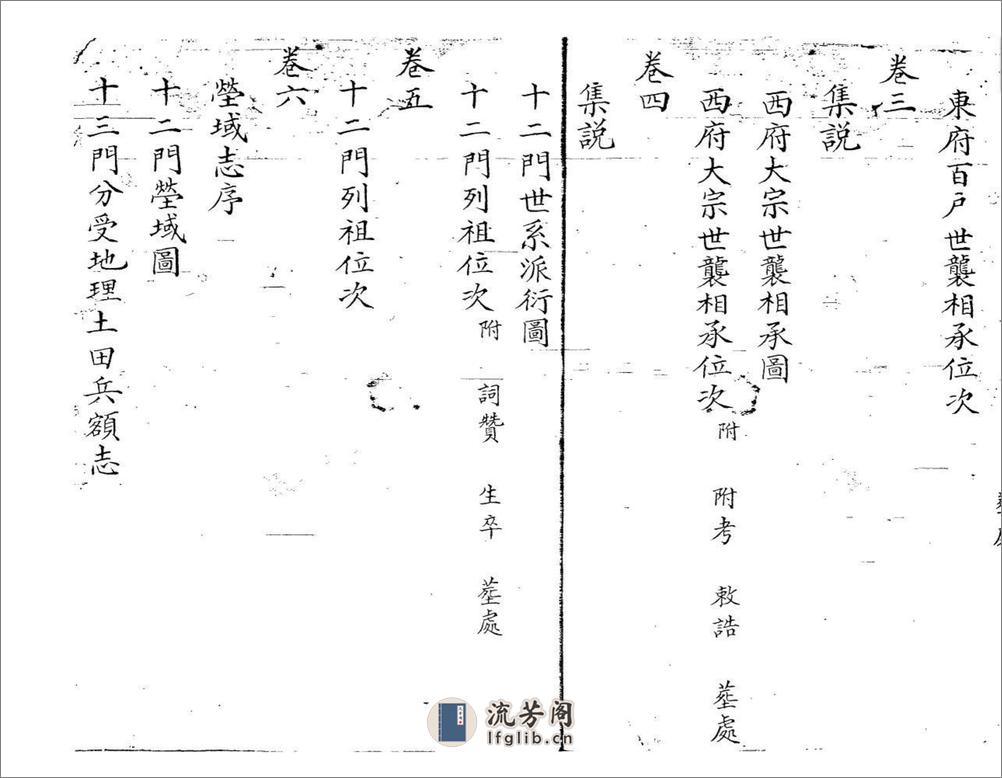 東府百户世襲相承位次
卷三
集説
西府大宗世襲相承圖
西府大宗世襲相承位次 附 附考 敕誥 塟處
卷四
集説
十二門世系派衍圖
十二門列祖位次 附 詞贊 生卒 塟處
卷五
十二門列祖位次
卷六
塋域志序
十二門塋域圖
十三門分受地理土田兵額志
流芳阁
lfglib.cn